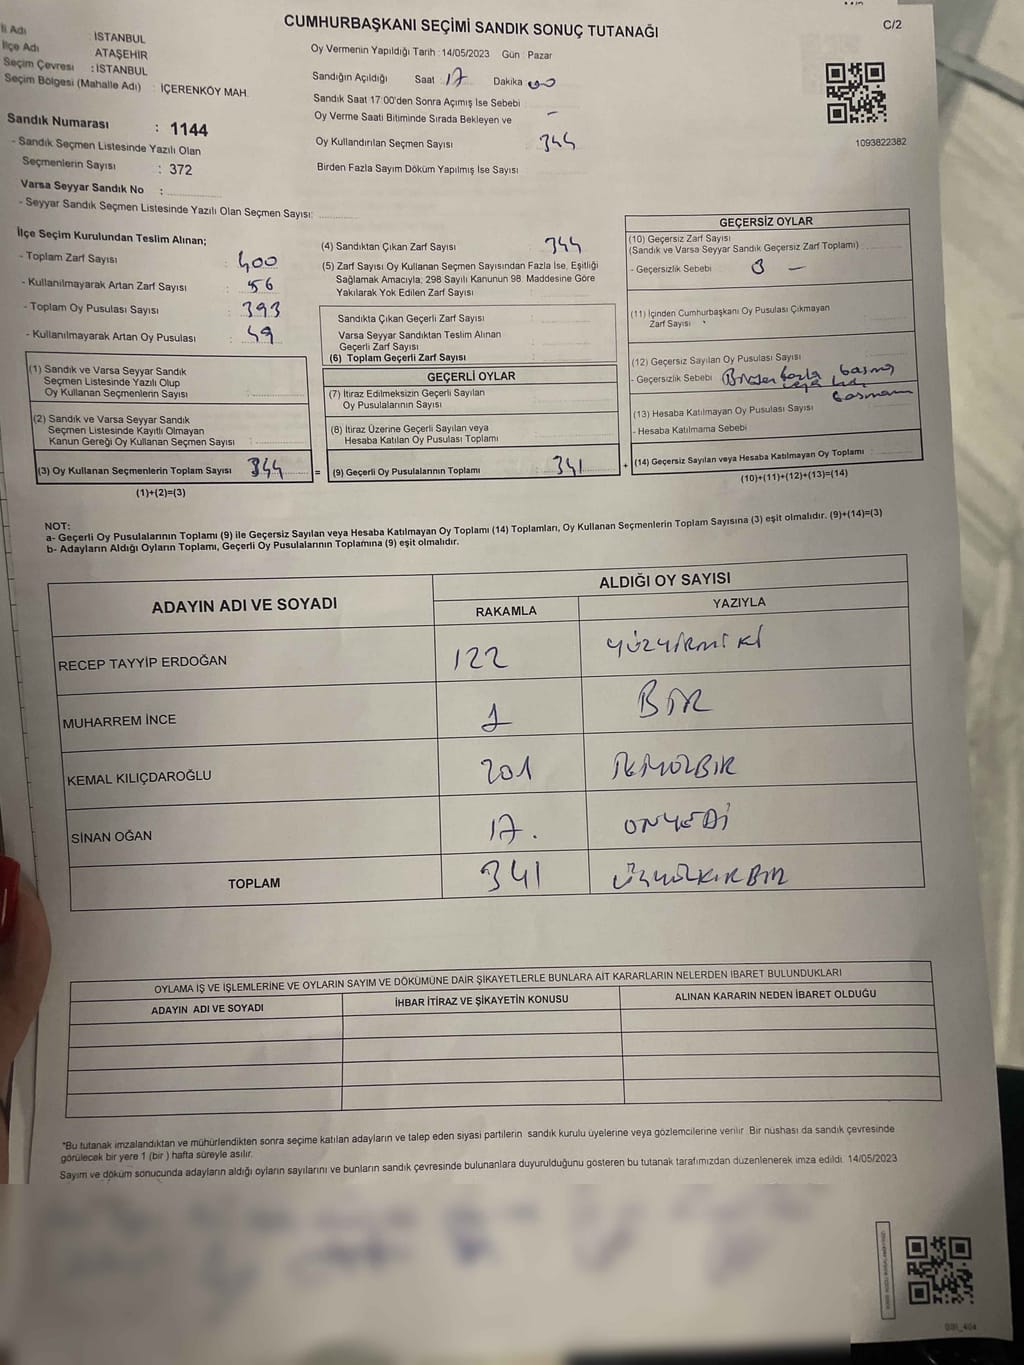 CUMHURBAŞKANI SEÇİMİ SANDIK SONUÇ TUTANAĞI
C/2
İl Adı : İSTANBUL
İlçe Adı : ATAŞEHİR
Seçim Çevresi : İSTANBUL
Seçim Bölgesi (Mahalle Adı) : İÇERENKÖY MAH.
Oy Vermenin Yapıldığı Tarih : 14/05/2023 Gün : Pazar
Sandığın Açıldığı Saat : 17 Dakika : 00
Sandık Saat 17:00'den Sonra Açımış Ise Sebebi
Oy Verme Saati Bitiminde Sırada Bekleyen ve –
Oy Kullandırılan Seçmen Sayısı : 344
Birden Fazla Sayım Döküm Yapılmış İse Sayısı
1093822382
Sandık Numarası : 1144
- Sandık Seçmen Listesinde Yazılı Olan
Seçmenlerin Sayısı : 372
Varsa Seyyar Sandık No :
- Seyyar Sandık Seçmen Listesinde Yazılı Olan Seçmen Sayısı:
İlçe Seçim Kurulundan Teslim Alınan;
- Toplam Zarf Sayısı : 400
- Kullanılmayarak Artan Zarf Sayısı : 56
- Toplam Oy Pusulası Sayısı : 393
- Kullanılmayarak Artan Oy Pusulası : 49
(1) Sandık ve Varsa Seyyar Sandık
Seçmen Listesinde Yazılı Olup
Oy Kullanan Seçmenlerin Sayısı :
(2) Sandık ve Varsa Seyyar Sandık
Seçmen Listesinde Kayıtlı Olmayan
Kanun Gereği Oy Kullanan Seçmen Sayısı :
(3) Oy Kullanan Seçmenlerin Toplam Sayısı 344
(1)+(2)=(3)
(4) Sandıktan Çıkan Zarf Sayısı : 344
(5) Zarf Sayısı Oy Kullanan Seçmen Sayısından Fazla İse, Eşitliği
Sağlamak Amacıyla; 298 Sayılı Kanunun 98. Maddesine Göre
Yakılarak Yok Edilen Zarf Sayısı :
Sandıkta Çıkan Geçerli Zarf Sayısı :
Varsa Seyyar Sandıktan Teslim Alınan
Geçerli Zarf Sayısı :
(6) Toplam Geçerli Zarf Sayısı :
GEÇERLİ OYLAR
(7) İtiraz Edilmeksizin Geçerli Sayılan
Oy Pusulalarının Sayısı :
(8) İtiraz Üzerine Geçerli Sayılan veya
Hesaba Katılan Oy Pusulası Toplamı :
= (9) Geçerli Oy Pusulalarının Toplamı : 341
GEÇERSİZ OYLAR
(10) Geçersiz Zarf Sayısı
(Sandık ve Varsa Seyyar Sandık Geçersiz Zarf Toplamı) :
- Geçersizlik Sebebi : 3 –
(11) İçinden Cumhurbaşkanı Oy Pusulası Çıkmayan
Zarf Sayısı :
(12) Geçersiz Sayılan Oy Pusulası Sayısı :
- Geçersizlik Sebebi : Birden fazla basma
veya hiç
basmama
(13) Hesaba Katılmayan Oy Pusulası Sayısı :
- Hesaba Katılmama Sebebi :
+ (14) Geçersiz Sayılan veya Hesaba Katılmayan Oy Toplamı :
(10)+(11)+(12)+(13)=(14)
NOT:
a- Geçerli Oy Pusulalarının Toplamı (9) ile Geçersiz Sayılan veya Hesaba Katılmayan Oy Toplamı (14) Toplamları, Oy Kullanan Seçmenlerin Toplam Sayısına (3) eşit olmalıdır. (9)+(14)=(3)
b- Adayların Aldığı Oyların Toplamı, Geçerli Oy Pusulalarının Toplamına (9) eşit olmalıdır.
ADAYIN ADI VE SOYADI
ALDIĞI OY SAYISI
RAKAMLA YAZIYLA
RECEP TAYYİP ERDOĞAN 122 YÜZYİRMİ Kİ
MUHARREM İNCE 1 BİR
KEMAL KILIÇDAROĞLU 201
SİNAN OĞAN 17. ONYEDİ
TOPLAM 341 ÜÇYÜZKIRKBİR
OYLAMA IŞ VE IŞLEMLERINE VE OYLARIN SAYIM VE DÖKÜMÜNE DAIR ŞIKAYETLERLE BUNLARA AIT KARARLARIN NELERDEN IBARET BULUNDUKLARI
ADAYIN ADI VE SOYADI İHBAR İTİRAZ VE ŞİKAYETİN KONUSU ALINAN KARARIN NEDEN İBARET OLDUĞU
*Bu tutanak imzalandıktan ve mühürlendikten sonra seçime katılan adayların ve talep eden siyasi partilerin sandık kurulu üyelerine veya gözlemcilerine verilir. Bir nüshası da sandık çevresinde
görülecek bir yere 1 (bir ) hafta süreyle asılır.
Sayım ve döküm sonucunda adayların aldığı oyların sayılarını ve bunların sandık çevresinde bulunanlara duyurulduğunu gösteren bu tutanak tarafımızdan düzenlenerek imza edildi. 14/05/2023